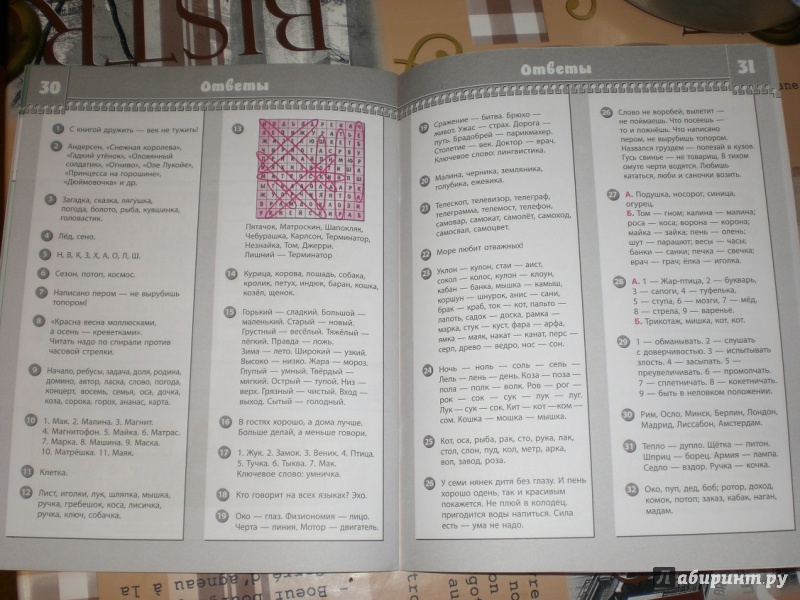 30
Ответы
1 С книгой дружить — век не тужить!
2 Андерсен. «Снежная королева»,
«Гадкий утёнок», «Оловянный
солдатик», «Огниво», «Оле Лукойе»,
«Принцесса на горошине»,
«Дюймовочка» и др.
3 Загадка, сказка, лягушка,
погода, болото, рыба, кувшинка,
головастик.
4 Лёд, сено.
5 Н, В, К, З, Х, А, О, Л, Ш.
6 Сезон, потоп, космос.
7 Написано пером — не вырубишь
топором!
8 «Красна весна моллюсками,
а осень — креветками».
Читать надо по спирали против
часовой стрелки.
9 Начало, ребусы, задача, доля, родина,
домино, автор, ласка, слово, погода,
концерт, восемь, семья, оса, дочка,
коза, сорока, горох, ананас, карта.
10 1. Мак. 2. Малина. 3. Магнит.
4. Магнитофон. 5. Майка. 6. Матрас.
7. Марка. 8. Машина. 9. Маска.
10. Матрёшка. 11. Маяк.
11 Клетка.
12 Лист, иголки, лук, шляпка, мышка,
ручка, гребешок, коса, лисичка,
ручка, ключ, собачка.
13
Пятачок, Матроскин, Шапокляк,
Чебурашка, Карлсон, Терминатор,
Незнайка, Том, Джерри.
Лишний — Терминатор
14 Курица, корова, лошадь, собака,
кролик, петух, индюк, баран, кошка,
козёл, щенок.
15 Горький — сладкий. Большой —
маленький. Старый — новый.
Грустный — весёлый. Тяжёлый —
лёгкий. Правда — ложь.
Зима — лето. Широкий — узкий.
Высоко — низко. Жара — мороз.
Глупый — умный. Твёрдый —
мягкий. Острый — тупой. Низ —
верх. Грязный — чистый. Вход —
выход. Сытый — голодный.
16 В гостях хорошо, а дома лучше.
Больше делай, а меньше говори.
17 1. Жук. 2. Замок. 3. Веник. 4. Птица.
5. Тучка. 6. Тыква. 7. Мак.
Ключевое слово: умничка.
18 Кто говорит на всех языках? Эхо.
19 Око — глаз. Физиономия — лицо.
Черта — линия. Мотор — двигатель.
Ответы
31
19 Сражение — битва. Брюхо —
живот. Ужас — страх. Дорога —
путь. Брадобрей — парикмахер.
Столетие — век. Доктор — врач.
Ключевое слово: лингвистика.
20 Малина, черника, земляника,
голубика, ежевика.
21 Телескоп, телевизор, телеграф,
телеграмма, телемост, телефон,
самовар, самокат, самолёт, самоход,
самосвал, самоцвет.
22 Море любит отважных!
23 Уклон — кулон, стаи — аист,
сокол — колос, кулон — клоун,
кабан — банка, мышка — камыш,
коршун — шнурок, анис — сани,
брак — краб, ток — кот, пальто —
лапоть, садок — доска, рамка —
марка, стук — куст, фара — арфа,
ямка — маяк, накат — канат, перс —
серп, древо — ведро, нос — сон.
24 Ночь — ноль — соль — сель —
Лель — лень — день. Коза — поза —
пола — полк — волк. Ров — рог —
рок — сок — сук — лук — луг.
Лук — сук — сок. Кит — кот —ком —
сом. Кошка — мошка — мышка.
25 Кот, оса, рыба, рак, сто, рука, лак,
стол, слон, пуд, кол, метр, арка,
вол, завод, роза.
26 У семи нянек дитя без глазу. И пень
хорошо одень, так и красивым
покажется. Не плюй в колодец,
пригодится воды напиться. Сила
есть — ума не надо.
26 Слово не воробей, вылетит —
не поймаешь. Что посеешь —
то и пожнёшь. Что написано
пером, не вырубишь топором.
Назвался груздем — полезай в кузов.
Гусь свинье — не товарищ. В тихом
омуте черти водятся. Любишь
кататься, люби и саночки возить.
27 А. Подушка, носорог, синица,
огурец.
Б. Том — гном; калина — малина;
роса — коса; ворона — корона;
майка — зайка; пень — олень;
шут — парашют; весы — часы;
банки — санки; печка — свечка;
врач — грач; ёлка — иголка.
28 А. 1 — Жар-птица, 2 — букварь,
3 — сапоги, 4 — туфелька,
5 — ступа, 6 — мозги, 7 — мёд,
8 — стрела, 9 — варенье.
Б. Трикотаж, мишка, кот, кот.
29 1 — обманывать. 2 — слушать
с доверчивостью. 3 — испытывать
злость. 4 — засыпать. 5 —
преувеличивать. 6 — промолчать.
7 — сплетничать. 8 — кокетничать.
9 — быть в неловком положении.
30 Рим, Осло, Минск, Берлин, Лондон,
Мадрид, Лиссабон, Амстердам.
31 Тепло — дупло. Щётка — питон.
Шприц — борец. Армия — лампа.
Седло — вздор. Ручка — кочка.
32 Око, пуп, дед, боб; ротор, доход,
комок, потоп; заказ, кабак, наган,
мадам.
Лабиринт.ру